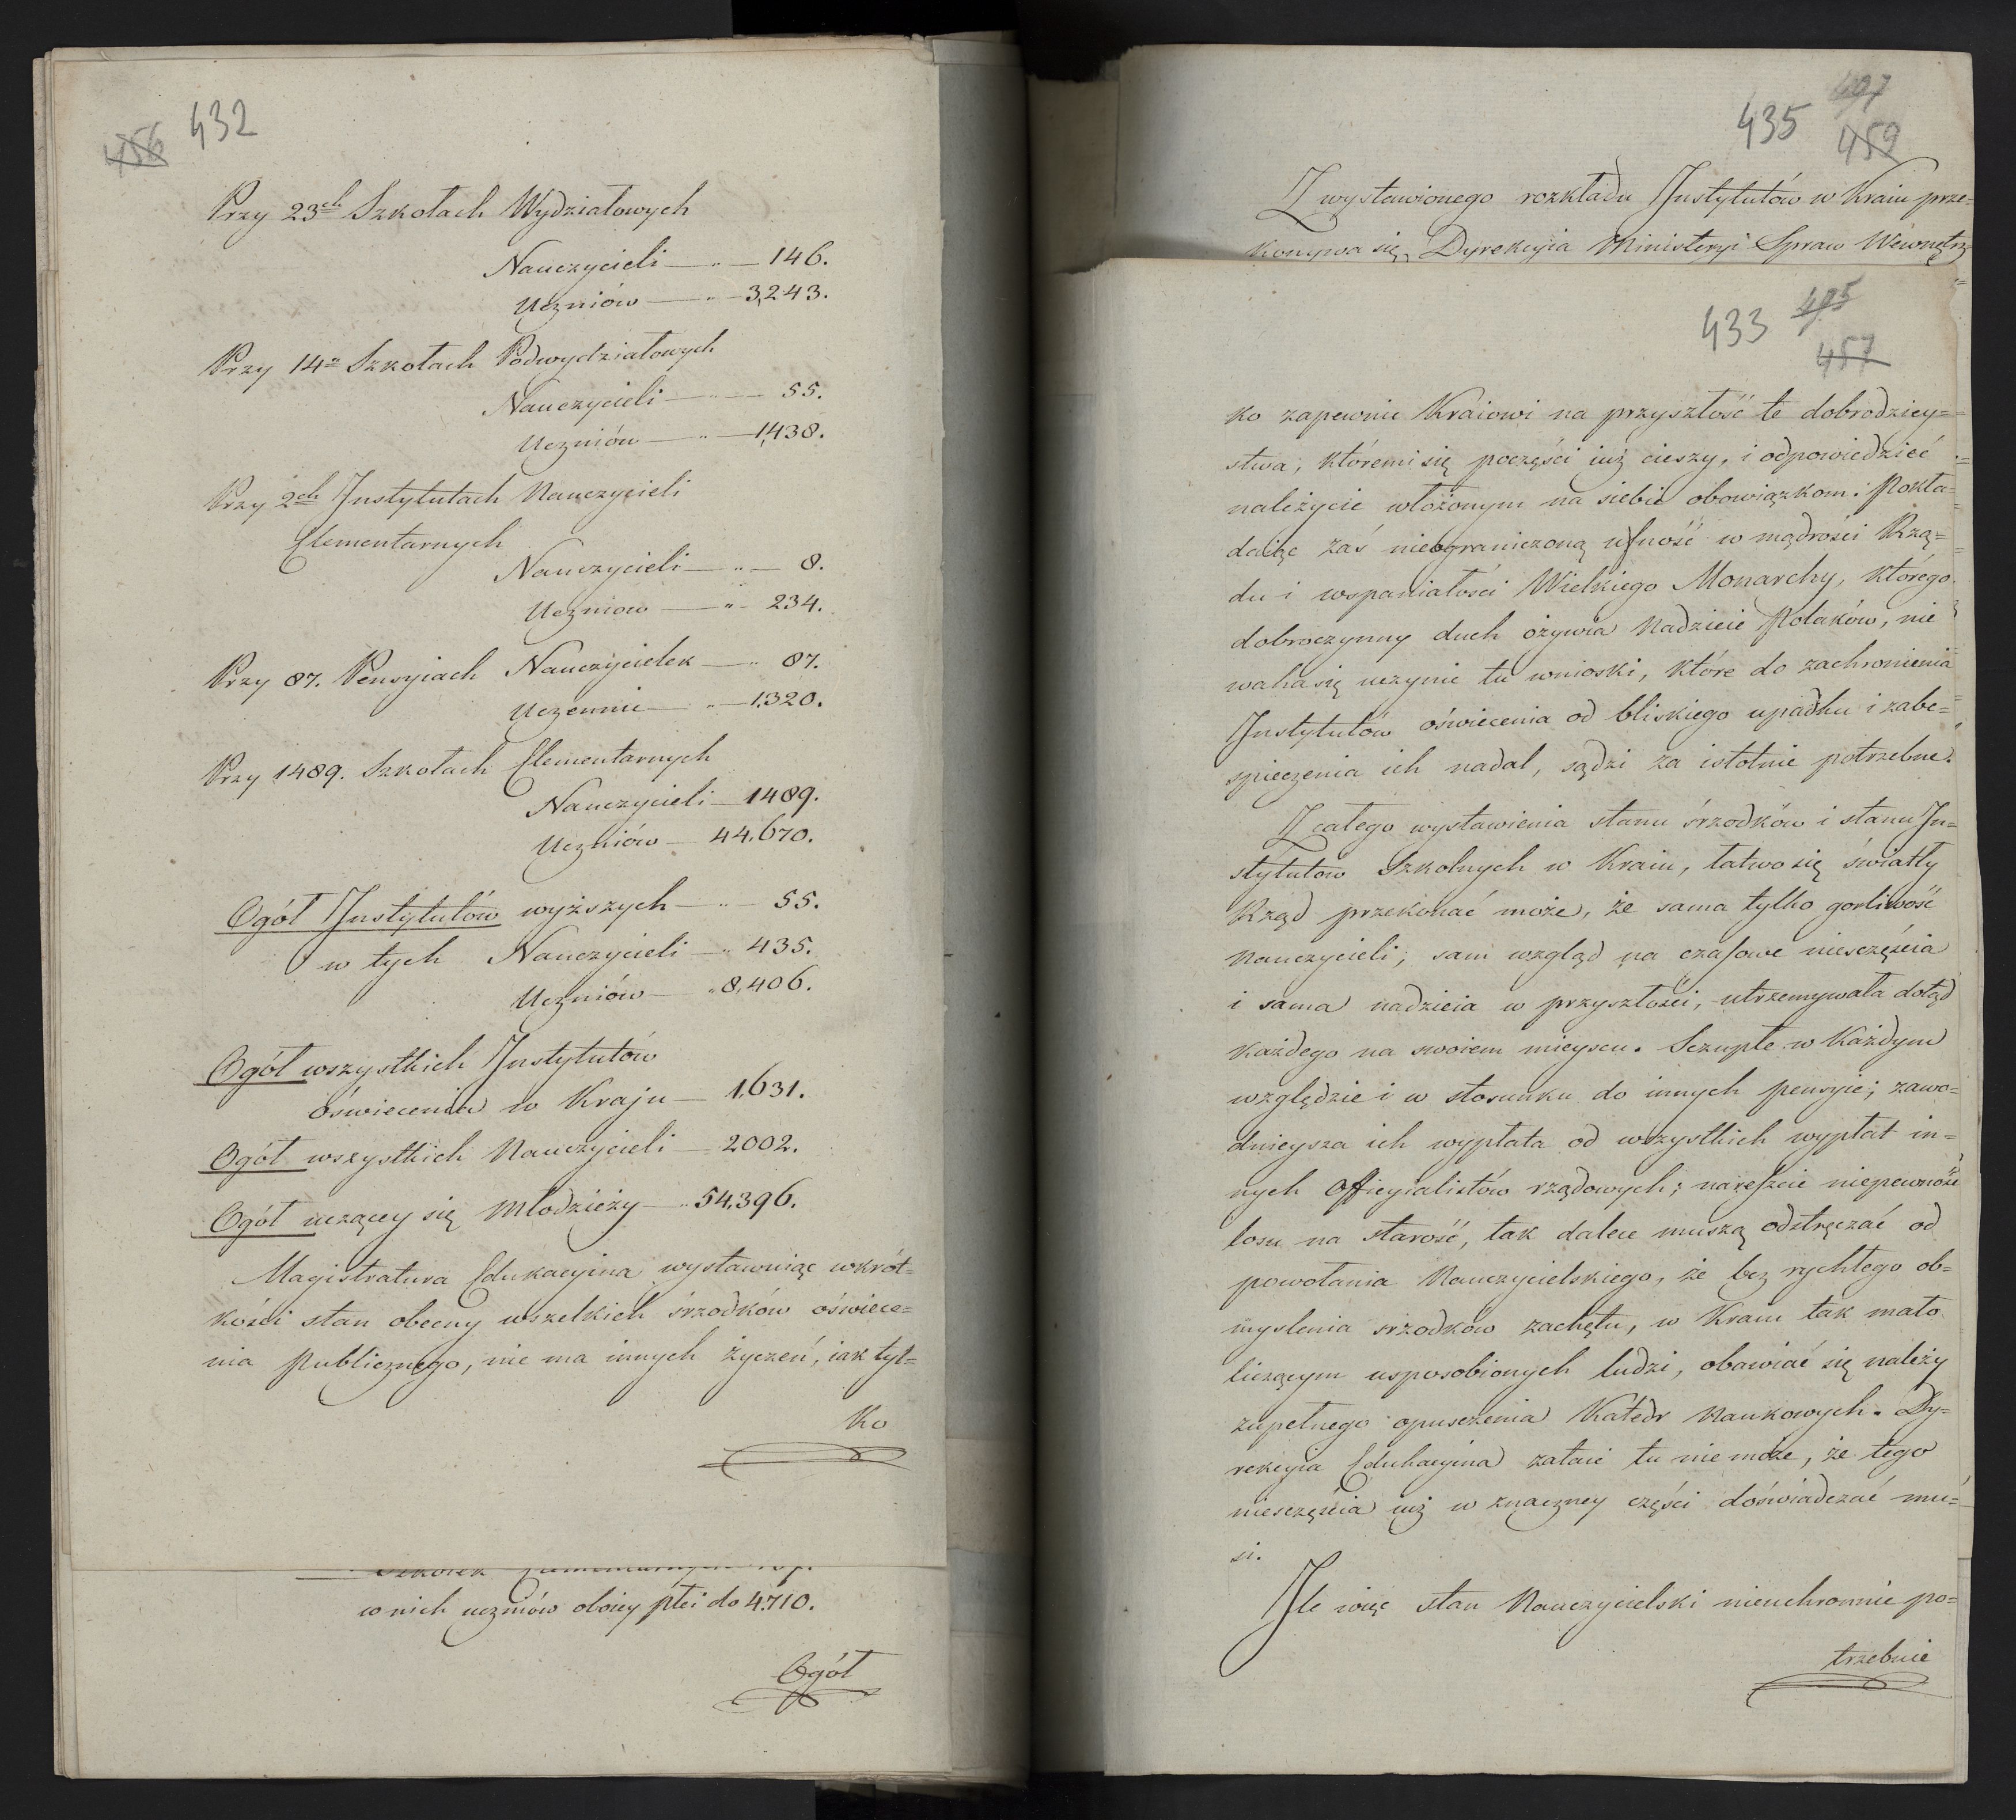 456 432
Przy 23ch Szkołach Wydziałowych
Nauczycieli — „ — 146.
Uczniów — „ — 3,243.
Przy 14u Szkołach Podwydziałowych
Nauczycieli — „ — 55.
Uczniów — „ — 1,438.
Przy 2ch Instytutach Nauczycieli
Elementarnych
Nauczycieli — „ — 8.
Uczniow — „ — 234.
Przy 87. Pensyiach Nauczycielek — „ 87.
Uczennic — „ — 1,320.
Przy 1489. Szkołach Elementarnych
Nauczycieli — 1489.
Uczniów — 44,670.
Ogół Instytutów wyższych — „ — 55.
w tych Nauczycieli — „ 435.
Uczniów — „ 8,406.
Ogół wszystkich Instytutów
óświecenia w Kraju — 1,631.
Ogół wszystkich Nauczycieli — 2002.
Ogół uczącey się Młodzieży — „ 54,396.
Magistratura Edukacyina wystawuiąc wkrót=
kości stan obecny wszelkich śrzodków oświece=
nia publicznego, nie ma innych życzeń, iak tyl=
Ko
w nich uczniów oboiey płci do 4710.
Ogół
435 459
Z wystawionego rozkładu Instytutów w Kraiu prze=
konywa się, Dyrekcyia Ministeryi Spraw Wewnętrz
433 457
ko zapewnić Kraiowi na przyszłość te dobrodziey=
stwa, któremi się poczęści iuż cieszy, i odpowiedzieć
należycie włożonym na siebie obowiązkom: Pokła=
daiąc zaś nieograniczoną ufność w mądrości Rzą=
du i wspaniałości Wielkiego Monarchy, którego
dobroczynny duch ożywia Nadzieie Polaków, nie
waha się uczynić tu wnioski, które do zachronienia
Instytutów oświecenia od bliskiego upadku i zabe=
spieczenia ich nadal, sądzi za istotnie potrzebne.
Z całego wystawienia stanu śrzodków i stanu In=
stytutów Szkolnych w Kraiu, łatwo się światły
Rząd przekonać może, że sama tylko gorliwość
Nauczycieli, sam wzgląd na czasowe niesczęścia
i sama nadzieia w przyszłości, utrzemywała dotąd
każdego na swoiem mieyscu. Sczupłe w każdym
względzie i w stosunku do innych pensyie; zawo=
dnieysza ich wypłata od wszystkich wypłat in=
nych Officyialistów rządowych; nareszcie niepewność
losu na starość, tak dalece muszą odstręczać od
powołania Nauczycielskiego, że bez rychłego ob=
myslenia srzodków zachętu, w Kraiu tak mało
liczącym usposobionych ludzi, obawiać się należy
zupełnego opusczenia Katedr Naukowych. Dy=
rekcyia Edukacyina zataić tu nie może, że tego
niesczęścia iuż w znaczney części doświadczać mu=
si.
Ile więc stan Nauczycielski nieuchronnie po=
trzebnie